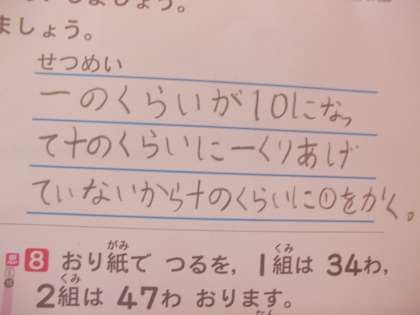 しましょう。
ましょう。
せつめい
一のくらいが10になっ
て十のくらいに一くりあげ
ていないから十のくらいに①をかく。
思 8 おり紙で つるを, 1組は 34わ,
2組は 47わ おります。